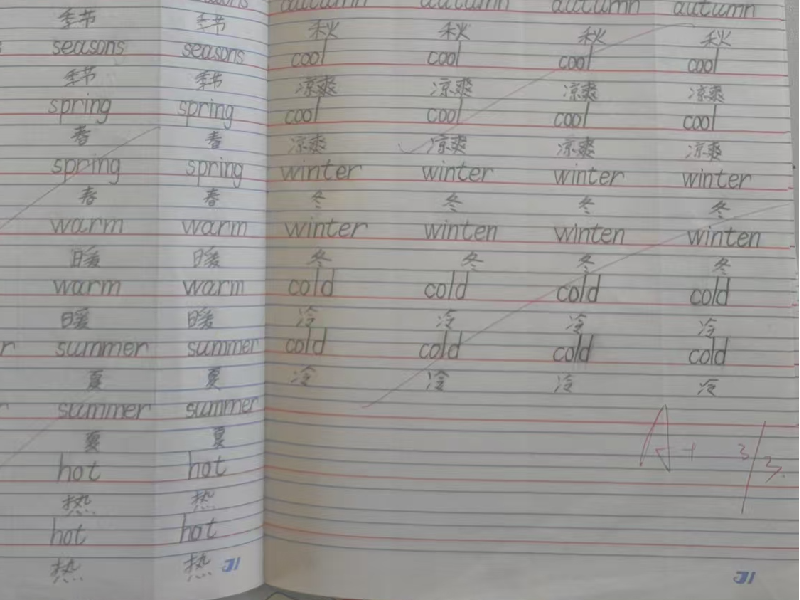 季节 季节
seasons seasons
季节 季节
spring spring
春 春
spring spring
春 春
warm warm
暖 暖
warm warm
暖 暖
r summer summer
夏 夏
summer summer
夏 夏
hot hot
热 热
hot hot
热 热
31
autumn autumn autumn autumn
秋 秋 秋 秋
cool cool cool cool
凉爽 凉爽 凉爽 凉爽
cool cool cool cool
凉爽 凉爽 凉爽 凉爽
winter winter winter winter
冬 冬 冬 冬
winter winten winten winten
冬 冬 冬 冬
cold cold cold cold
冷 冷 冷 冷
cold cold cold cold
冷 冷 冷 冷
A+ 3/3.
31